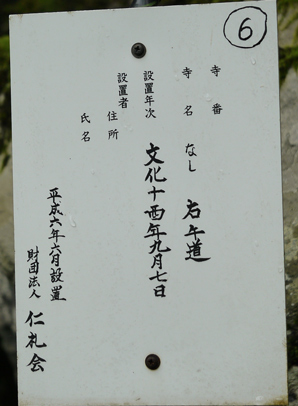 ⑥
寺番
寺名 なし 右午道
設置年次 文化十四年九月七日
設置者 住所
氏名
平成六年六月設置
財団法人 仁礼会